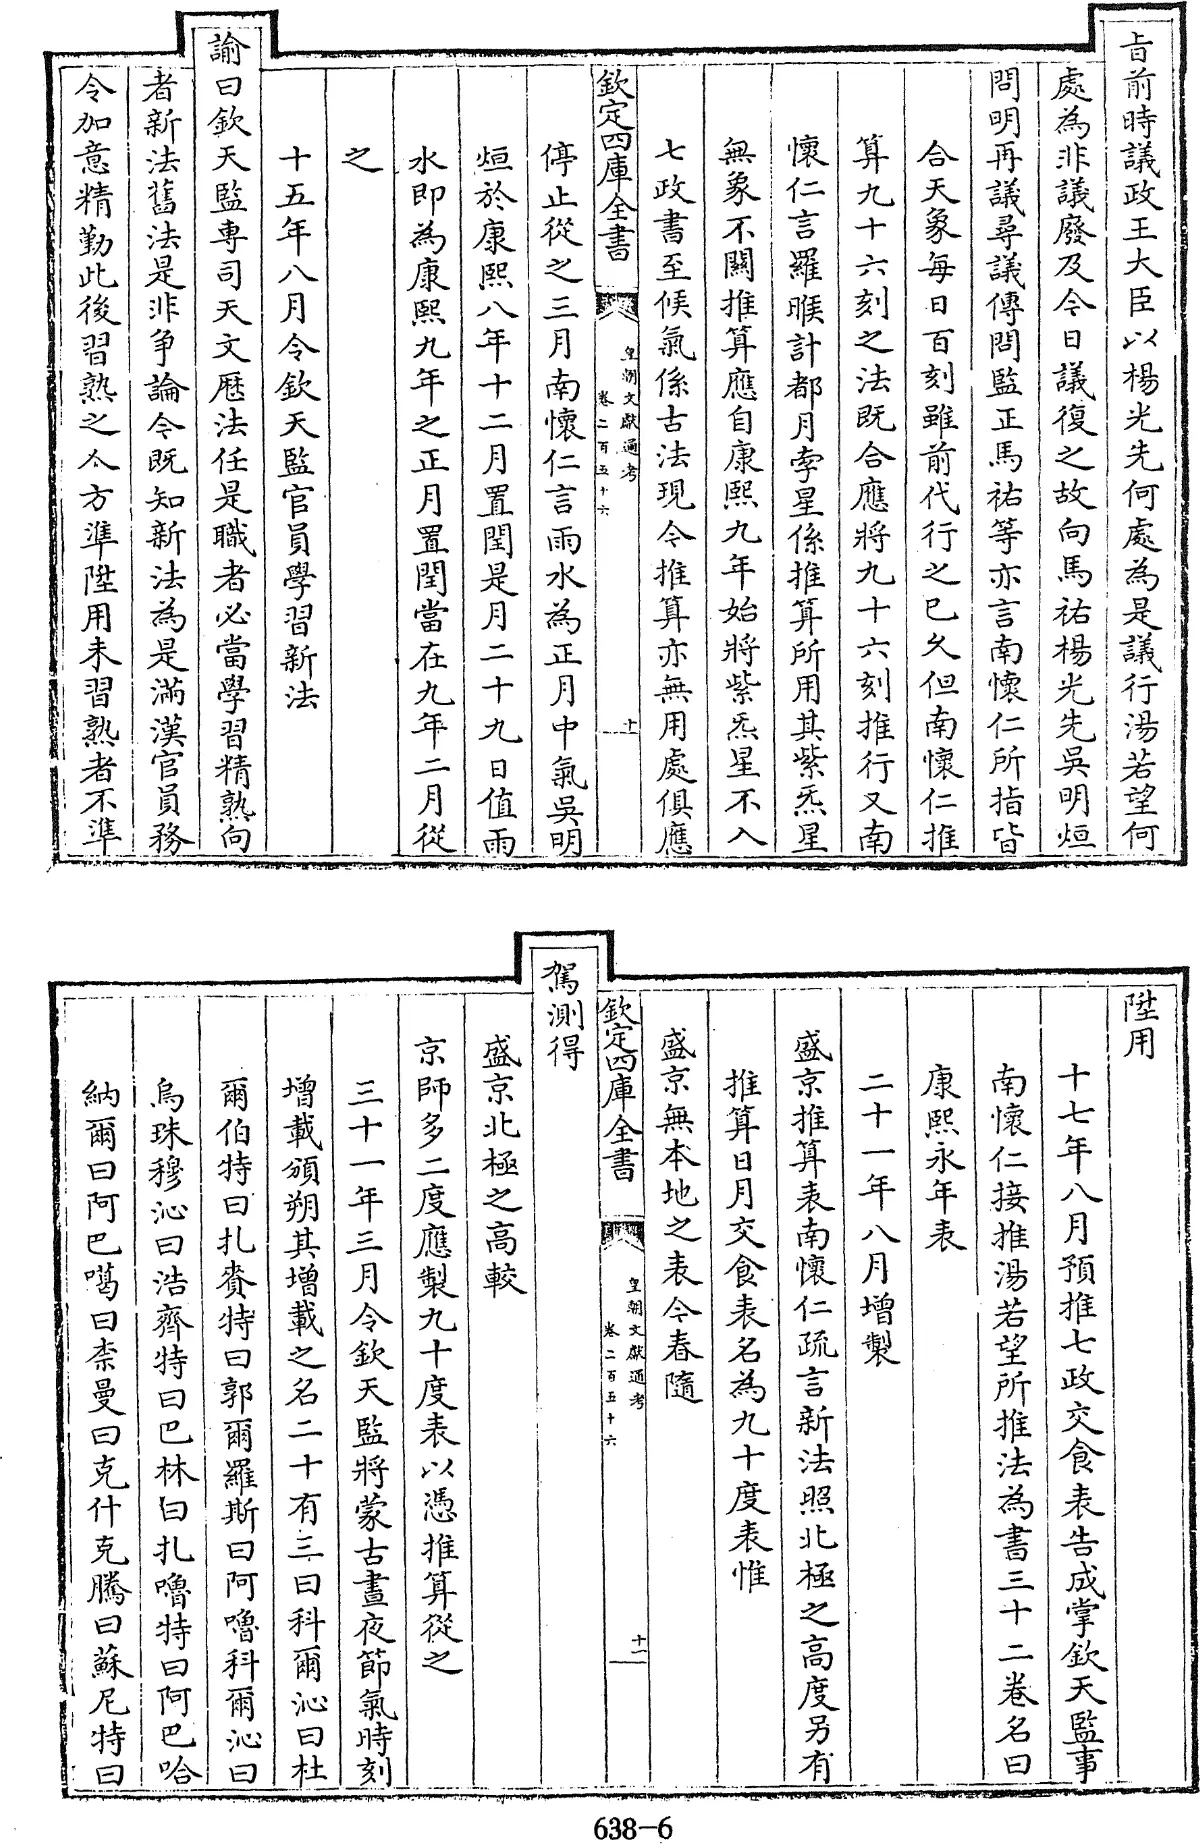 旨前時議政王大臣以楊光先何處為是議行湯若望何
處為非議廢及今日議復之故向馬祐楊光先吳明烜
問明再議尋議傳問監正馬祐等亦言南懷仁所指皆
合天象每日百刻雖前代行之已久但南懷仁推
算九十六刻之法既合應將九十六刻推行又南
懷仁言羅㬋計都月孛星係推算所用其紫炁星
無象不關推算應自康熙九年始將紫炁星不入
七政書至候氣係古法現今推算亦無用處俱應
欽定四庫全書
皇朝文獻通考
卷二百五十六
十
停止從之三月南懷仁言雨水為正月中氣吳明
烜於康熙八年十二月置閏是月二十九日值雨
水即為康熙九年之正月置閏當在九年二月從
之
十五年八月令欽天監官員學習新法
諭曰欽天監專司天文厯法任是職者必當學習精熟向
者新法舊法是非爭論今既知新法為是滿漢官員務
令加意精勤此後習熟之人方準陞用未習熟者不準
陞用
十七年八月預推七政交食表告成掌欽天監事
南懷仁接推湯若望所推法為書三十二卷名曰
康熙永年表
二十一年八月增製
盛京推算表南懷仁疏言新法照北極之高度另有
推算日月交食表名為九十度表惟
盛京無本地之表今春隨
欽定四庫全書
皇朝文獻通考
卷二百五十六
十一
駕測得
盛京北極之高較
京師多二度應製九十度表以憑推算從之
三十一年三月令欽天監將蒙古晝夜節氣時刻
增載頒朔其增載之名二十有三曰科爾沁曰杜
爾伯特曰扎賚特曰郭爾羅斯曰阿嚕科爾沁曰
烏珠穆沁曰浩齊特曰巴林曰扎嚕特曰阿巴哈
納爾曰阿巴噶曰柰曼曰克什克騰曰蘇尼特曰
638-6